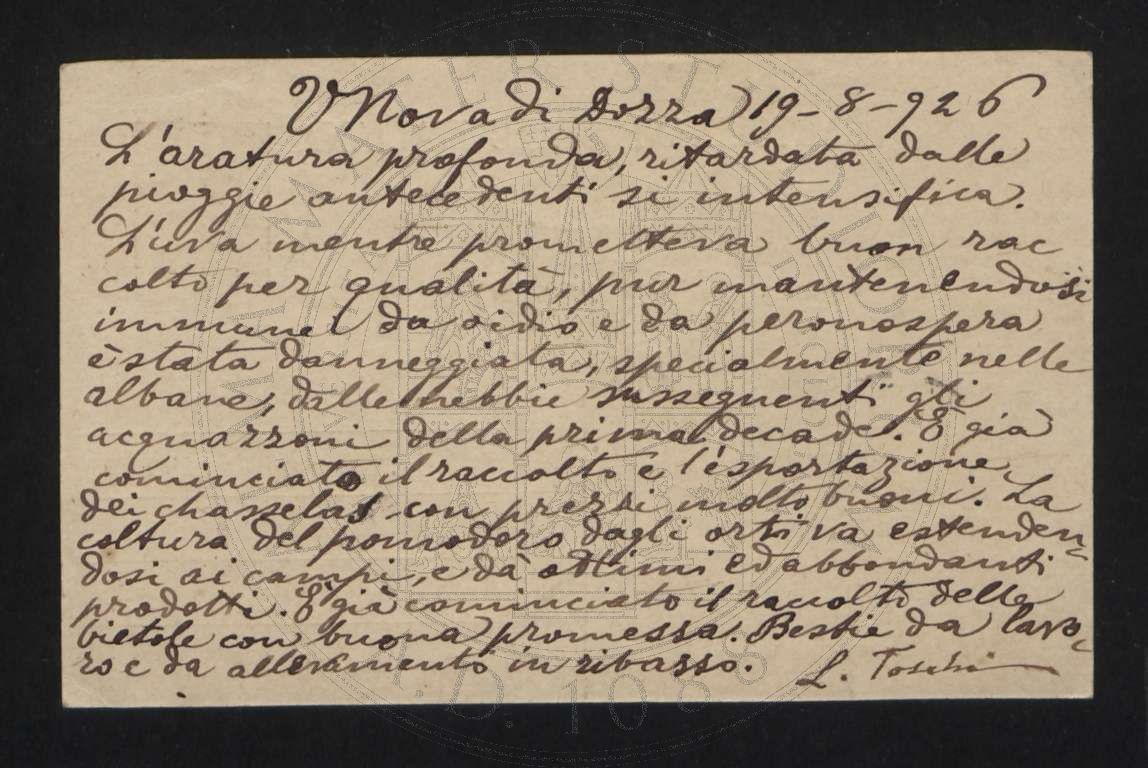 V Nova di Dozza 19-8-926
L'aratura profonda, ritardata dalle
pioggie antecedenti si intensifica.
L'uva mentre prometteva buon rac
colto per qualità, pur mantenendosi
immune da oidio e da peronospera
è stata danneggiata, specialmente nelle
albane, dalle nebbie susseguenti gli
acquazzoni della prima decade. È già
cominciato il raccolto e l'esportazione
dei chasselas con prezzi molto buoni. La
coltura del pomodoro dagli orti va estenden-
dosi ai campi, e dà ottimi ed abbondanti
prodotti. È già cominciato il raccolto delle
bietole con buona promessa. Bestie da lavo-
ro e da allevamento in ribasso.
L. Toschi
ALMA MATER STUDIORUM
A.D. 1088